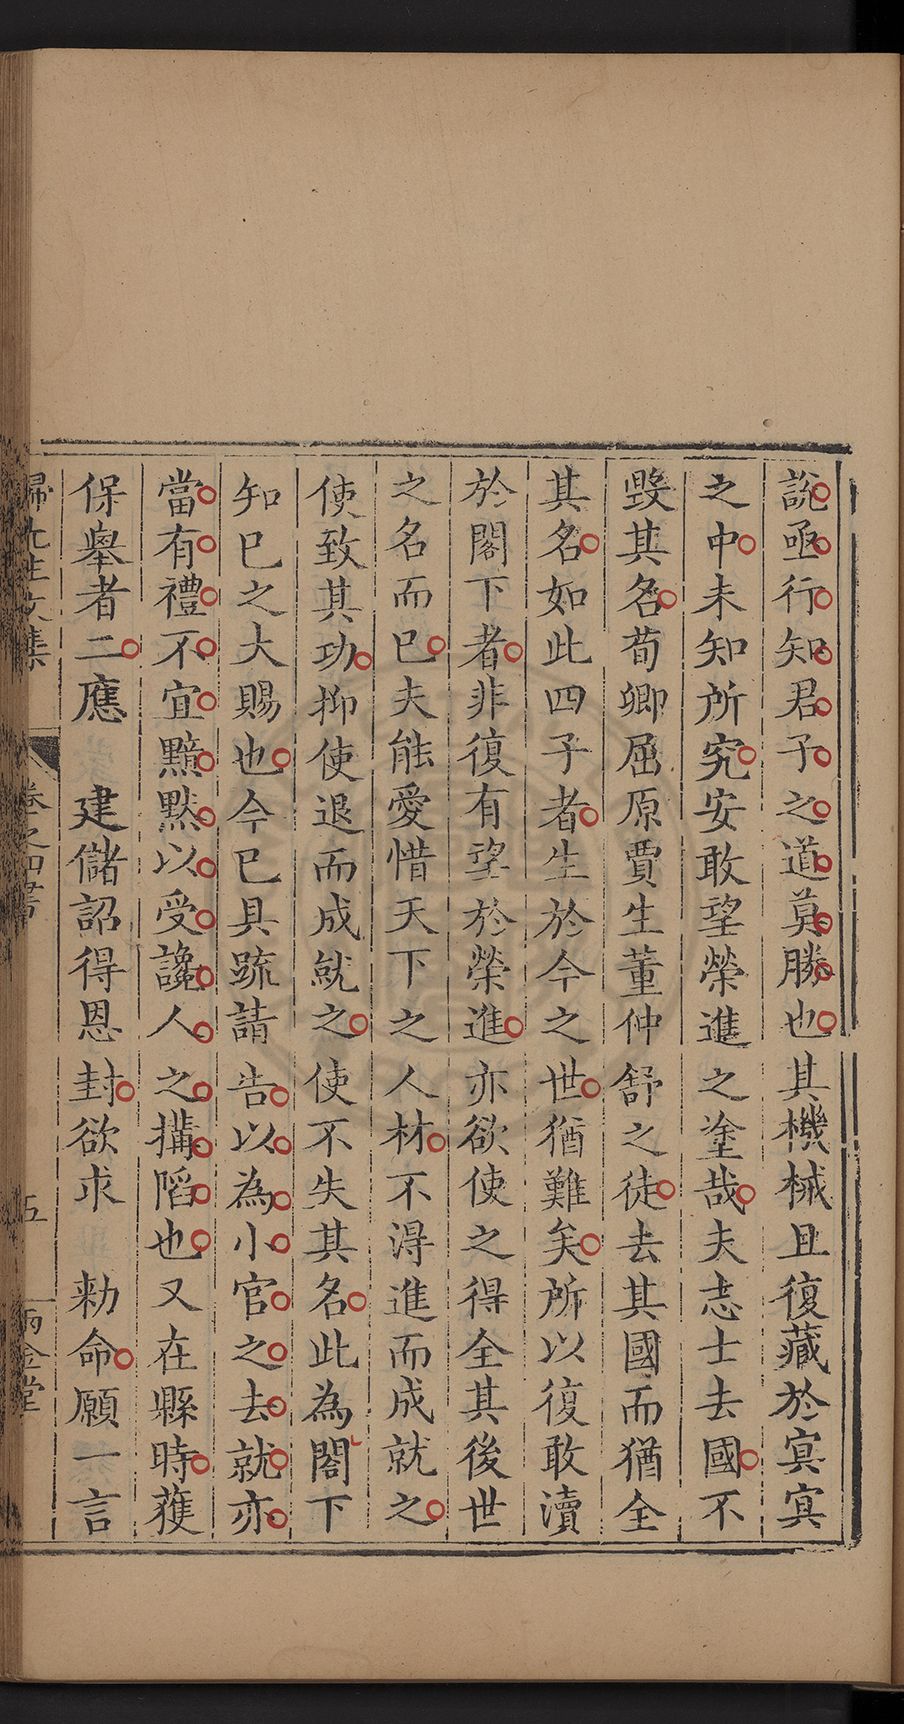 說亟行知君子之道莫勝也其機械且復藏於㝠㝠
之中未知所究安敢望榮進之塗哉夫志士去國不
毀其名荀卿屈原賈生董仲舒之徒去其國而猶全
其名如此四子者生於今之世猶難矣所以復敢瀆
於閣下者非復有望於榮進亦欲使之得全其後世
之名而已夫能愛惜天下之人材不得進而成就之
使致其功抑使退而成就之使不失其名此為閣下
知已之大賜也今已具疏請告以為小官之去就亦
當有禮不宜黯默以受讒人之搆陷也又在縣時獲
保舉者二應建儲詔得恩封欲求勑命願一言
卷之四書
五